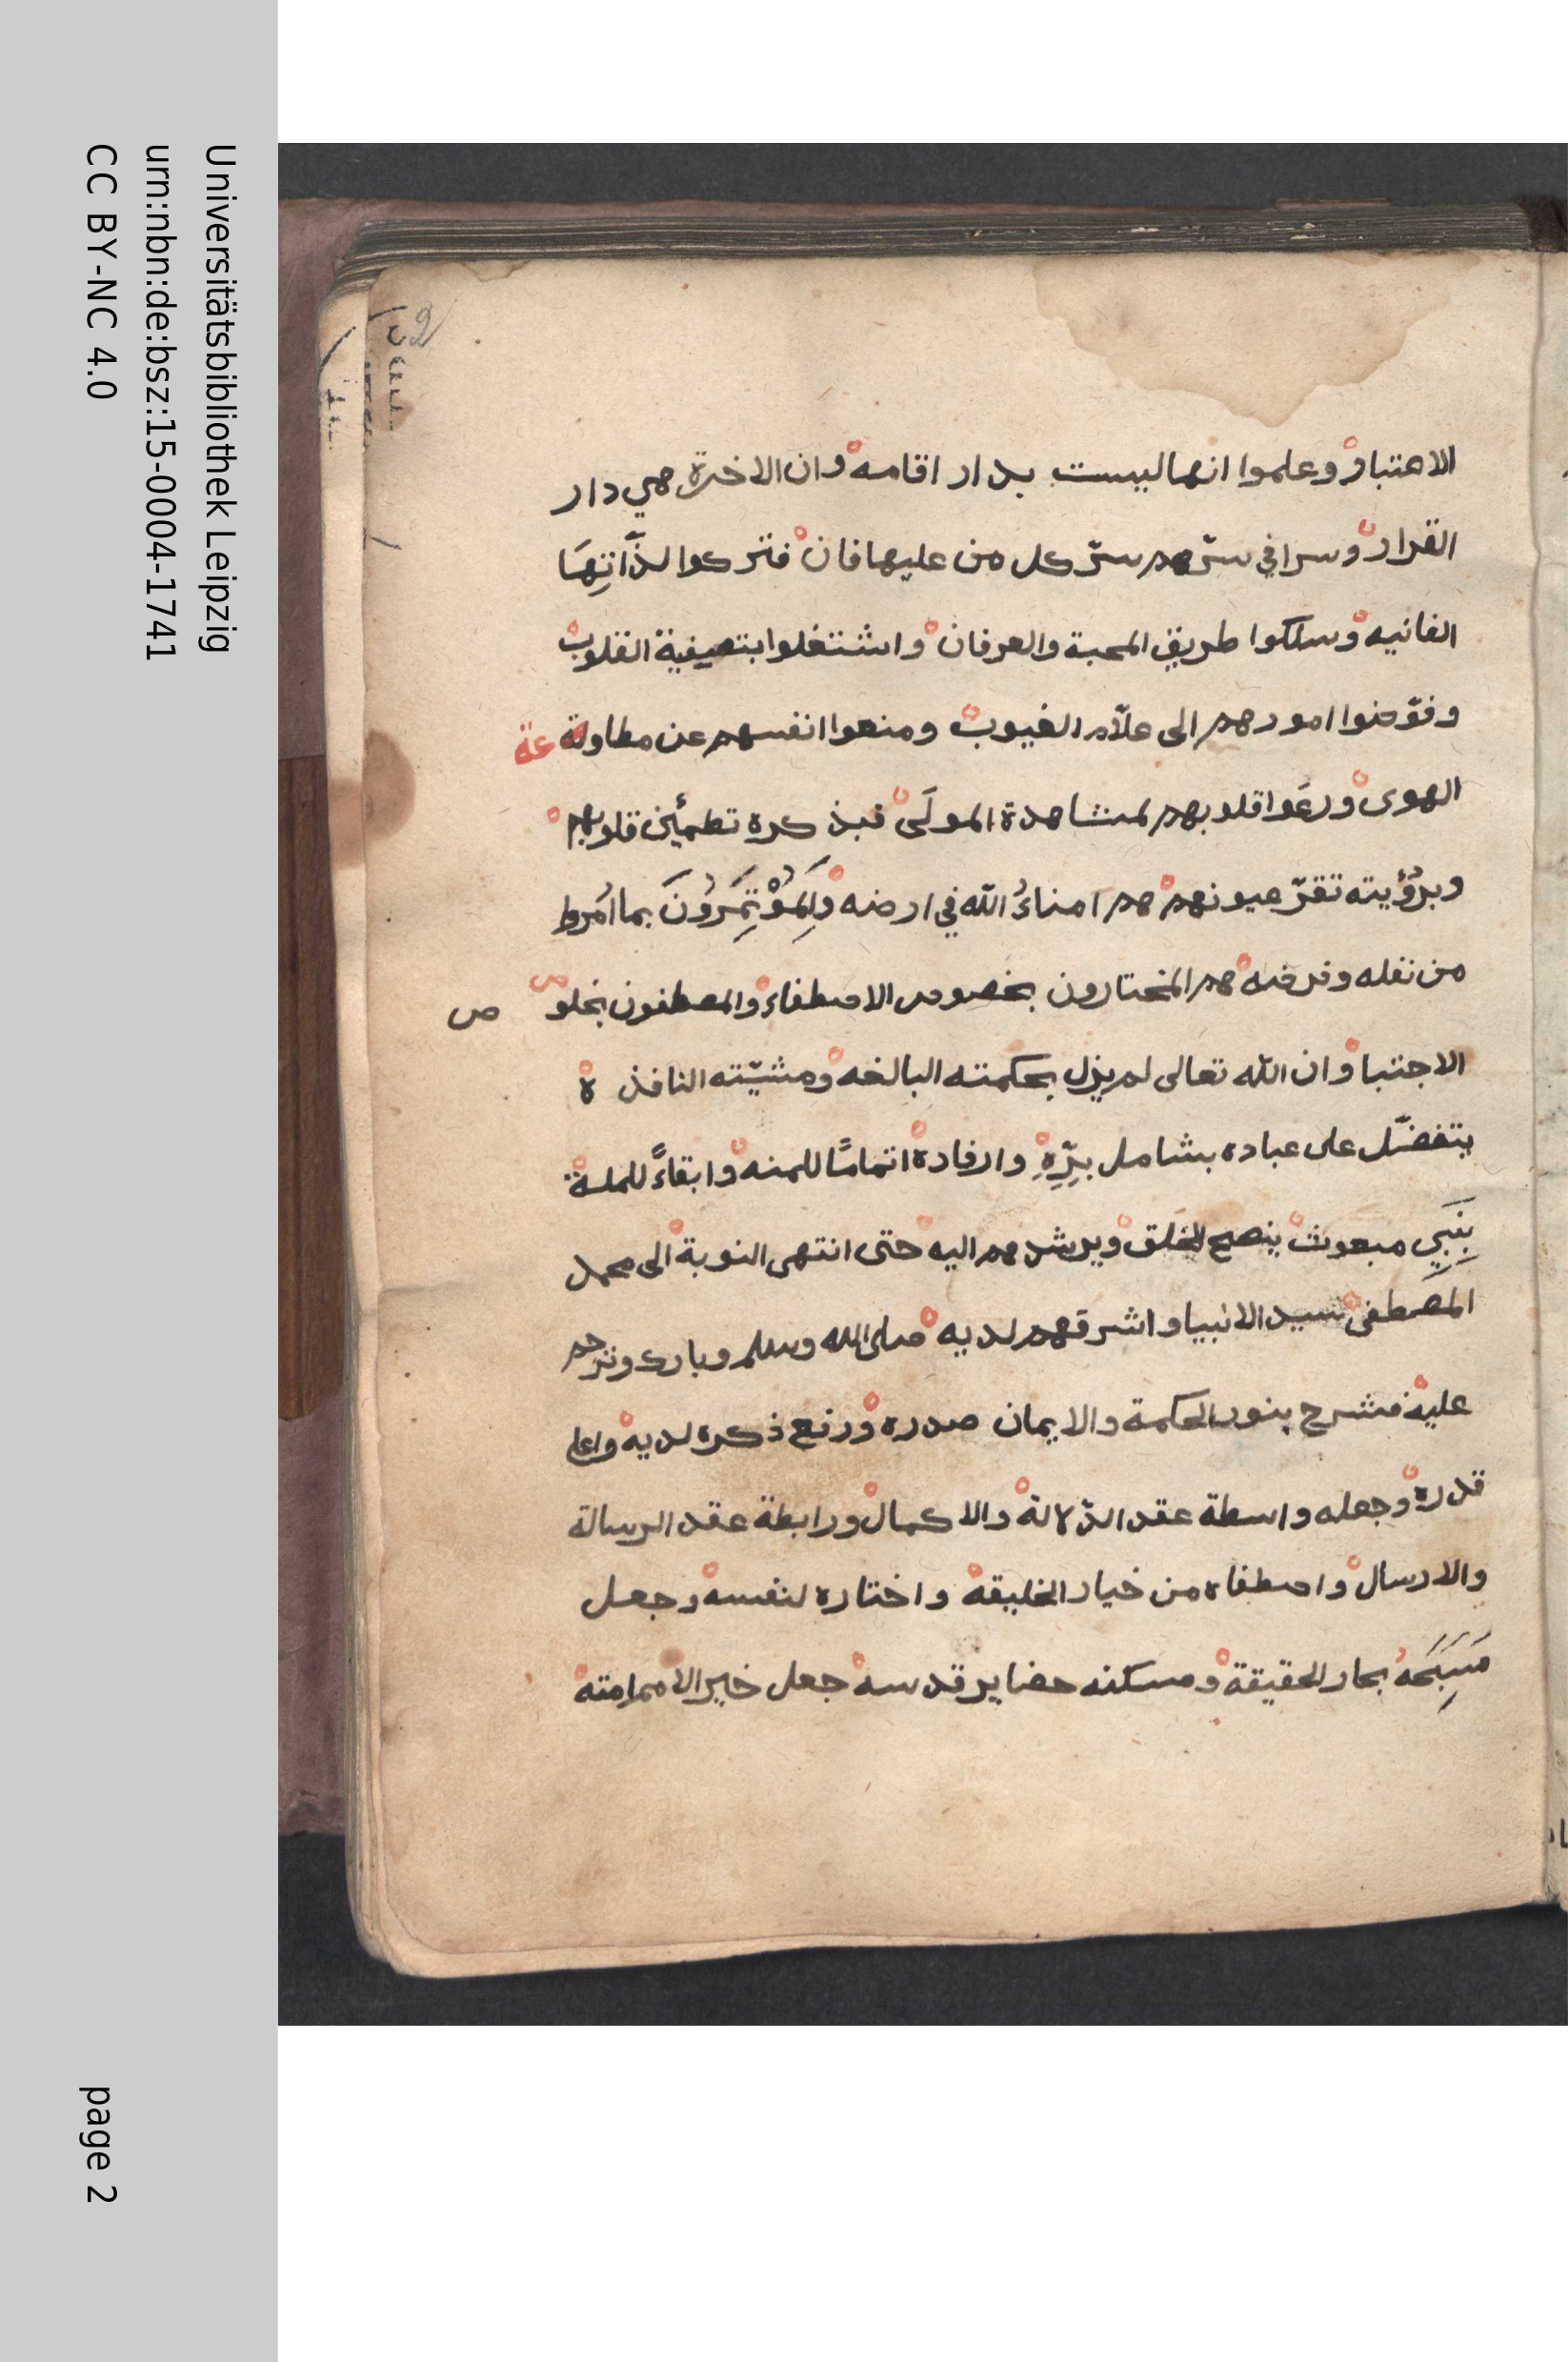 الاعتبار وعلموا انها ليست بدار اقامه وان الاخرة هي دار
القرار وسرا في سرّهم سرّ كل من عليها فان فتركوا لذّاتِهَا
الفانيه وسلكوا طريق المحبة والعرفان واشتغلوا بتصفية القلوب
وفوّضوا امورهم الى علاّم الغيوب ومنعوا انفسهم عن مطاوعة
الهوى ورعَوا قلوبهم لمشاهدة المولَى فبذكره تطمئن قلوبهم
وبرؤيته تقرّ عيونهم هم امناءُ الله في ارضه وَالمُؤْتَمِرُونَ بما امُروا
من نفله وفرضه هم المختارون بخصوص الاصطفاء والمصطفون بخلوص
الاجتبا وان الله تعالى لم يزل بحكمته البالغه ومشيّته النافذة
يتفضّل على عباده بشامل برِّهِ وارفاده اتمامًا للمنه وابقاءً للملة
بِنَبِي مبعوث ينصح الخلق ويرشدهم اليه حتى انتهى النوبة الى محمد
المصطفى سيد الانبيا واشرفهم لديه صلى الله وسلم وبارك وترحم
عليه فشرح بنور الحكمة والايمان صدره ورفع ذكره لديه واعلى
قدره وجعله واسطة عقد الدّلالة والاكمال ورابطة عقد الرسالة
والارسال واصطفاه من خيار الخليقه واختاره لنفسه وجعل
مَسبَحَهُ بحار الحقيقة ومسكنه حضاير قدسه جعل خير الامم امته
Universitätsbibliothek Leipzig
urn:nbn:de:bsz:15-0004-1741
CC BY-NC 4.0
page 2